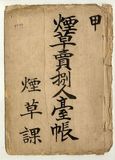 甲
煙草賣捌人臺帳
煙草課